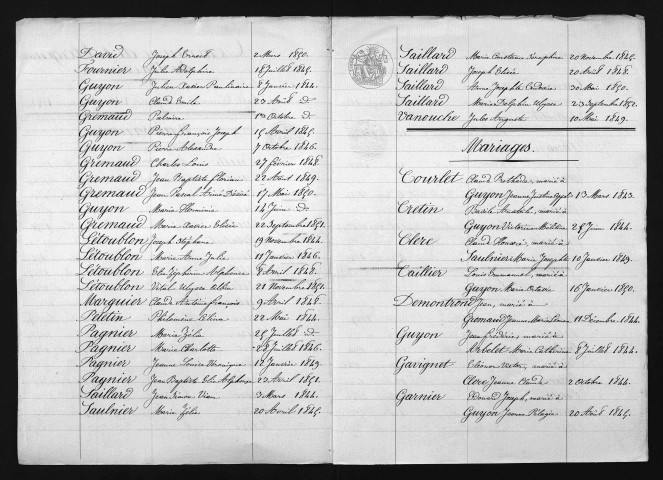 David Joseph Ernest 2 Mars 1850.
Fournier Julie Adelphine 18 Juillet 1845.
Guyon Julien Xavier Paulinaire 8 Janvier 1844.
Guyon Claud Emile 23 Août d°
Gremaud Palmire 1er Octobre d°
Guyon Pierre François Joseph 15 Avril 1845.
Guyon Pierre Alexandre 7 Octobre 1846.
Gremaud Charles Louis 27 février 1848.
Gremaud Jean Baptiste Florian 22 Avril 1849.
Gremaud Jean Pascal Aimé Désiré 17 Mai 1850.
Guyon Marie Herminie 14 Juin d°
Gremaud Marie Xavier Elisée 22 Septembre 1851.
Létoublon Joseph Stéphane 19 Novembre 1844.
Létoublon Marie Anne Julie 11 Janvier 1846.
Létoublon Elie Zéphirin Alphonse 8 Avril 1848.
Létoublon Vital Ulysse 21 Novembre 1851.
Marguier Claude Antoine françois 9 Avril 1848.
Patetin Philomène Elina 22 Mai 1844.
Pagnier Marie Zélie 25 Juillet d°
Pagnier Marie Charlotte 28 Juillet 1846.
Pagnier Jeanne Louise Véronique 12 Janvier 1849.
Pagnier Jean Baptiste Elie Alphonse 22 Avril 1851.
Saillard Jean Simon 3 Mars 1844.
Saulnier Marie Zélie 20 Avril 1845.
Saillard Marie Séraphine 20 Novembre 1845.
Saillard Joseph Elisée 20 Avril 1848.
Saillard Anne Josephte 30 Mai 1850.
Saillard Marie Delphin Ulysse 23 Septembre 1852.
Vanouche Jules August 10 Mai 1849.
Mariages.
Courlet Claud, marié à
Guyon Jeanne 13 Mars 1843.
Cretin Basile, marié à
Guyon Victorine 25 Juin 1844.
Clerc Claud Honoré, marié à
Saulnier Marie Josephte 10 Janvier 1849.
Caillier Louis Emmanuel, marié à
Guyon Marie Octavie 16 Janvier 1850.
Demontrond Jean, marié à
Gremaud Jeanne Marie 11 Décembre 1844.
Guyon Jean frédéric, marié à
Arbelot Marie Catherine 8 Juillet 1844.
Gavignet Eléonor Victor, marié à
Clerc Jeanne Claude 2 Octobre 1844.
Garnier Edouard Joseph, marié à
Guyon Jeanne Pélagie 20 Août 1845.